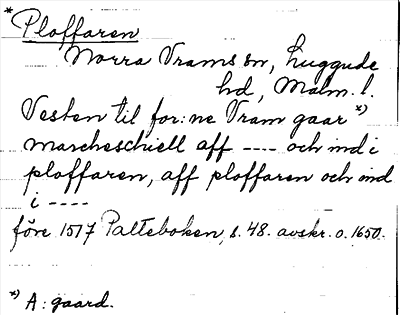 * Ploffaren
Norra Vrams sn, Luggude
hd, Malm. l.
Vesten til for:ne Vram gaar *)
marcheschiell aff ---- och ind i
ploffaren, aff ploffaren och ind
i ----
före 1517 Palteboken, s. 48. avskr. o. 1650.
*) A: gaard.